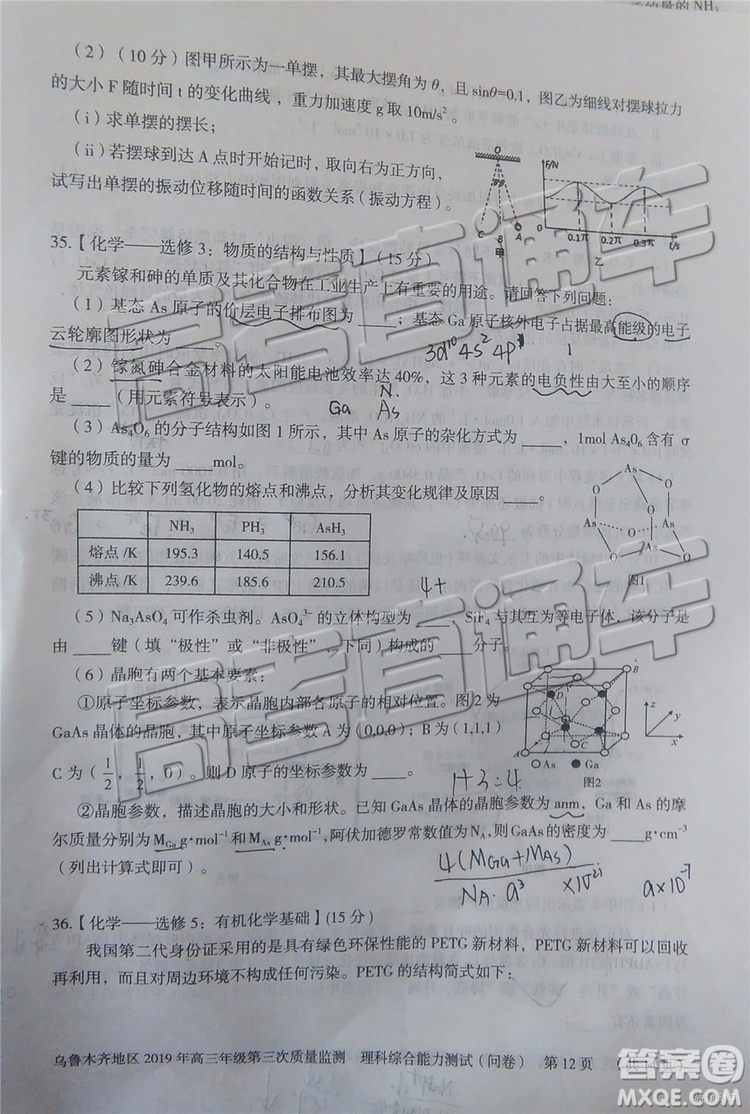 的 NH₃
（2）（10 分）图甲所示为一单摆，其最大摆角为 θ，且 sinθ=0.1，图乙为细线对摆球拉力
的大小 F 随时间 t 的变化曲线，重力加速度 g 取 10m/s²。
（i）求单摆的摆长；
（ii）若摆球到达 A 点时开始记时，取向右为正方向，
试写出单摆的振动位移随时间的函数关系（振动方程）。
O
C
B
A
甲
F/N
0
0.1π
0.2π
0.3π
t/s
乙
35.【化学——选修 3：物质的结构与性质】（15 分）
元素镓和砷的单质及其化合物在工业生产上有重要的用途。请回答下列问题：
（1）基态 As 原子的价层电子排布图为 ____；基态 Ga 原子核外电子占据最高能级的电子
云轮廓图形状为 ____。
3d¹⁰4s²4p¹
（2）镓氮砷合金材料的太阳能电池效率达 40%，这 3 种元素的电负性由大至小的顺序
N.
是 ____（用元素符号表示）。
Ga As
（3）As₄O₆ 的分子结构如图 1 所示，其中 As 原子的杂化方式为 ____，1mol As₄O₆ 含有 σ
键的物质的量为 ____mol。
（4）比较下列氢化物的熔点和沸点，分析其变化规律及原因 ____。
NH₃ PH₃ AsH₃
熔点 /K 195.3 140.5 156.1
沸点 /K 239.6 185.6 210.5
As
O
O
O
As
As
O
As
O
O
图1
4+
（5）Na₃AsO₄ 可作杀虫剂。AsO₄³⁻ 的立体构型为 ____，SiF₄ 与其互为等电子体，该分子是
由 ____键（填“极性”或“非极性”，下同）构成的 ____分子。
（6）晶胞有两个基本要素：
①原子坐标参数，表示晶胞内部各原子的相对位置。图 2 为
GaAs 晶体的晶胞，其中原子坐标参数 A 为（0,0,0）；B 为（1,1,1）
C 为（1/2，1/2，0）。则 D 原子的坐标参数为 ____。
B
D
C
A
z
y
x
○As ●Ga
图2
1+3=4
②晶胞参数，描述晶胞的大小和形状。已知 GaAs 晶体的晶胞参数为 anm，Ga 和 As 的摩
尔质量分别为 M_Ga g·mol⁻¹ 和 M_As g·mol⁻¹，阿伏加德罗常数值为 N_A，则 GaAs 的密度为 ____g·cm⁻³
（列出计算式即可）。
4(MGa+MAs)
NA·a³ ×10⁻²¹
a×10⁻⁷
36.【化学——选修 5：有机化学基础】（15 分）
我国第二代身份证采用的是具有绿色环保性能的 PETG 新材料，PETG 新材料可以回收
再利用，而且对周边环境不构成任何污染。PETG 的结构简式如下：
乌鲁木齐地区 2019 年高三年级第三次质量监测 理科综合能力测试（问卷） 第 12 页
高考直通车
高考直通车